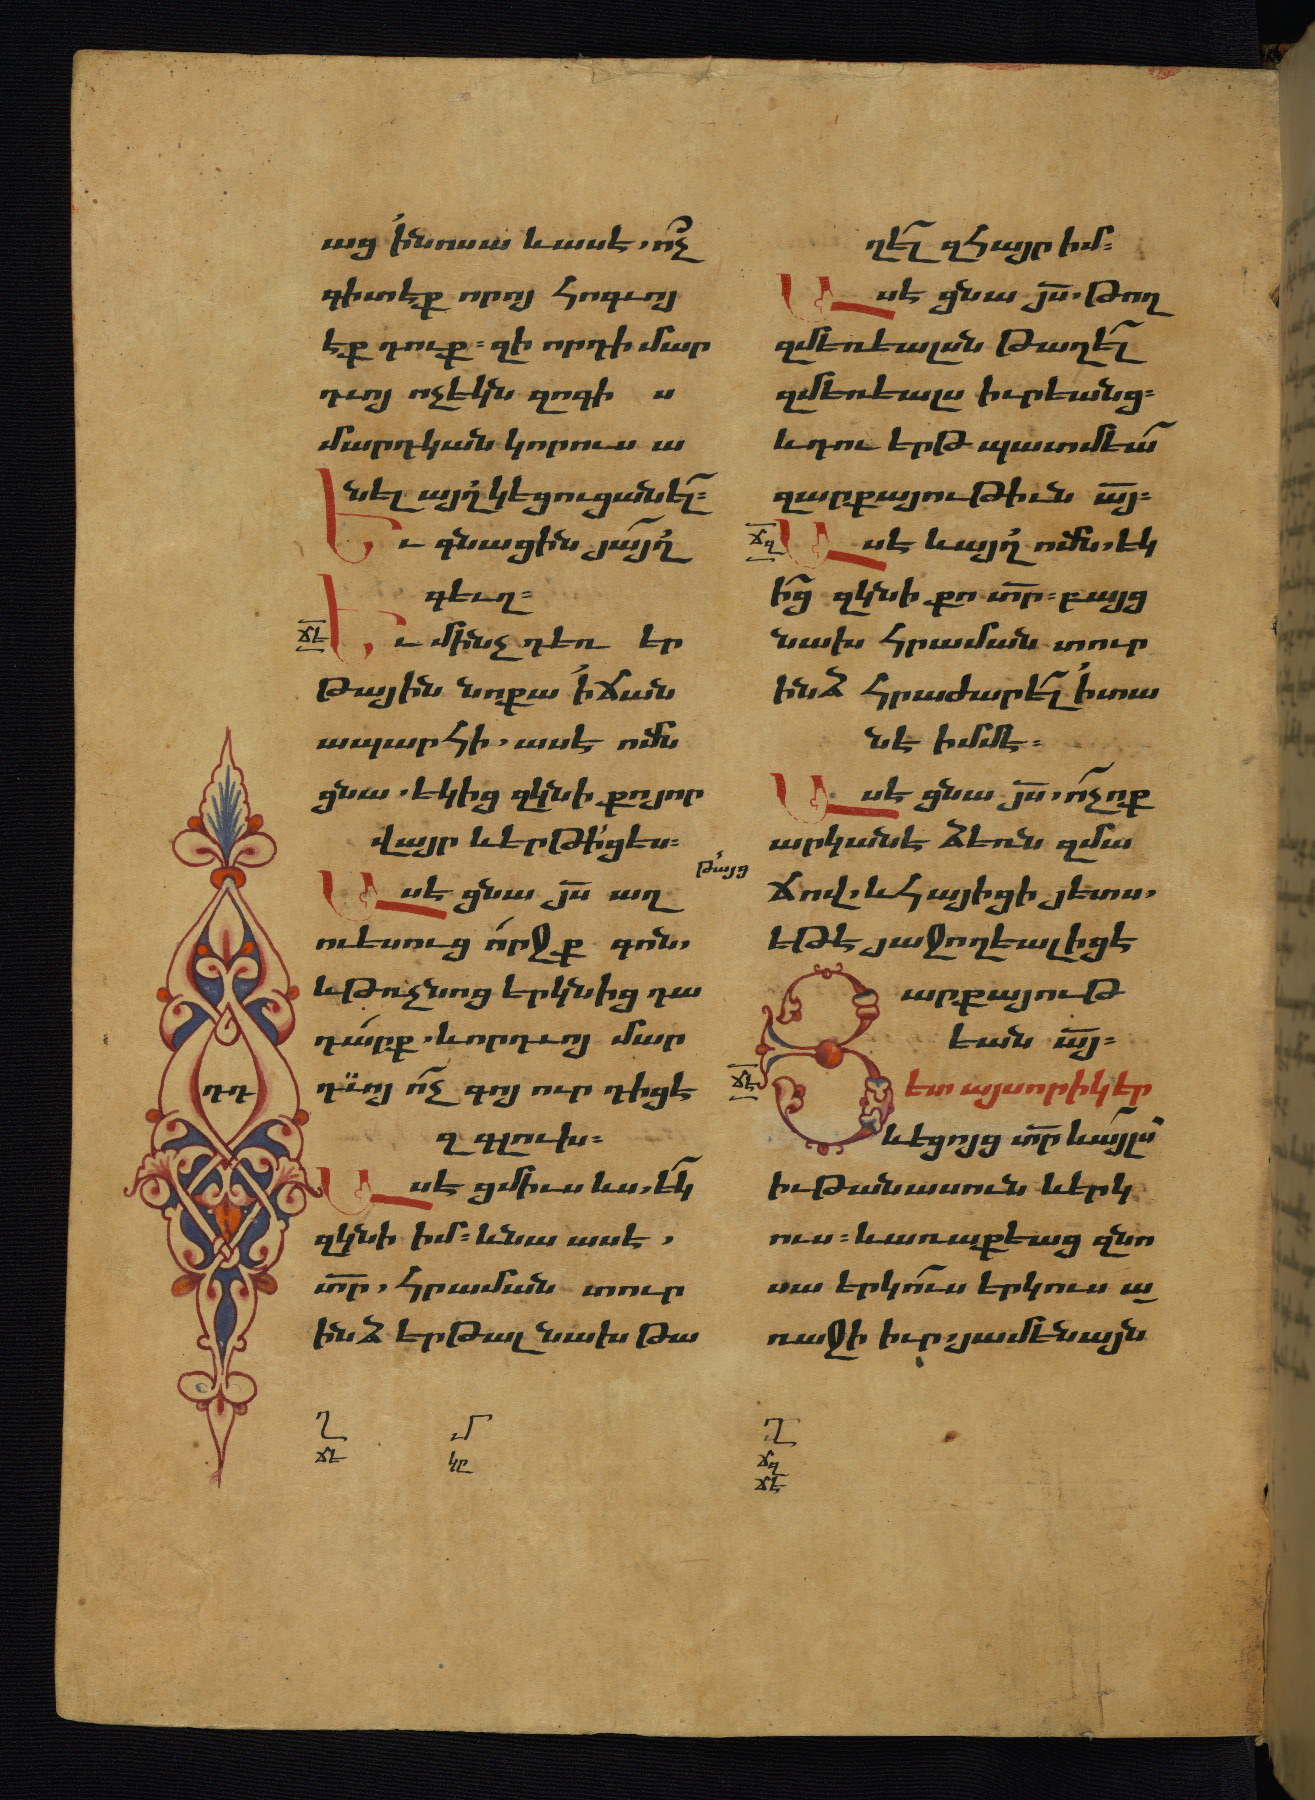 աց ՛ի նոսա և ասէ, ո՞չ
գիտէք որոյ հոգւոյ
էք դուք = զի որդի մար
դւոյ ոչ եկն զոգի ս
մարդկան կորուս ա
նել այղ կեցուցանել =
Եւ գնացին յայղ
գեւղ =
ՃԵ
Եւ մինչ դեռ եր
թային նոքա ՛ի ճան
ապարհի, ասէ ոմն
ցնա, եկից զկնի քո յոր
վայր և երթիցես =
Ասէ ցնա յս աղ
ուեսուց որջք գոն,
և թռչնոց երկնից դա
դարք, և որդւոյ մար
դդ
դւոյ ո՛չ գոյ ուր դիցէ
զ գլուխ =
Ասէ ցմիւս ևս, եկ
զկնի իմ = և նա ասէ,
տր, հրաման տուր
ինձ երթալ նախ թա
ղել զհայր իմ =
Ասէ ցնա յս, թող
զմեռեալսն թաղել
զմեռեալս իւրեանց =
և դու երթ պատմեա
զարքայութիւն այ =
ՃԶ
Ասէ և այղ ոմն, եկ
ից զկնի քո տր = բայց
նախ հրաման տուր
ինձ հրաժարել ՛ի տա
նէ իմմէ =
Ասէ ցնա յս, ո՛չ ոք
արկանէ ձեռն զմա
թայց
ճով, և հայիցի յետս,
եթէ յաջողեալ իցէ
արքայութ
եան այ =
ՃԷ
Յետ այսորիկ եր
ևեցոյց տր և այլս
իւթանասուն և երկ
ուս = և առաքեաց զնո
սա երկուս երկուս ա
ռաջի իւր, յամենայն
Ղ
ՃԵ
Մ
ԿԸ
Ղ
ՃԶ
ՃԷ